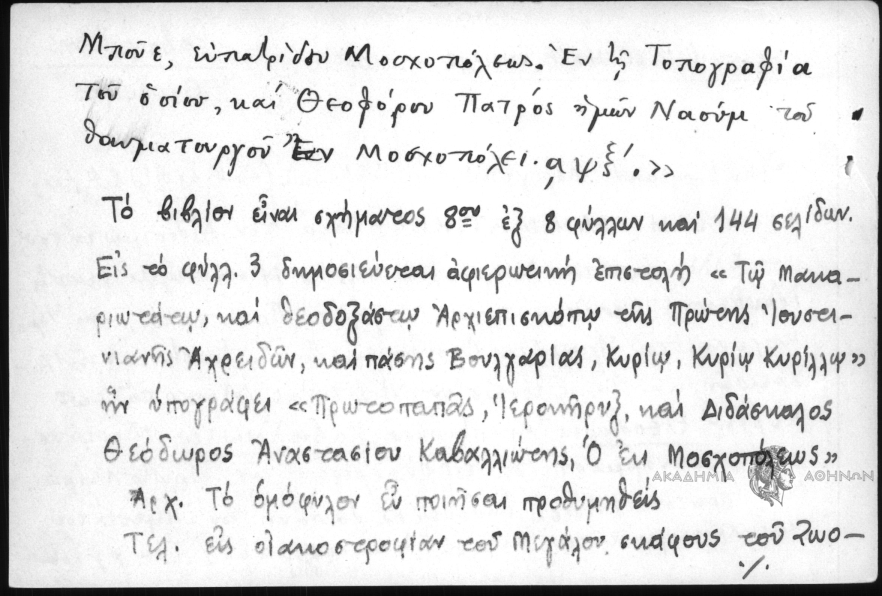 Μποῦε, εὐπατρίδου Μοσχοπόλεως. Ἐν τῇ Τοπογραφίᾳ
τοῦ ὁσίου, καὶ Θεοφόρου Πατρός ἡμῶν Ναούμ τοῦ
θαυματουργοῦ Ἐν Μοσχοπόλει. ͵αψξ΄. »
Τό βιβλίον εἶναι σχήματος 8ου ἐξ 8 φύλλων καί 144 σελίδων.
Εἰς τό φύλλ. 3 δημοσιεύεται ἀφιερωτική ἐπιστολή «Τῷ Μακα-
ριωτάτῳ, καί θεοδοξάστῳ Ἀρχιεπισκόπῳ τῆς Πρώτης Ἰουστι-
νιανῆς Ἀχρειδῶν, καί πάσης Βουλγαρίας, Κυρίῳ, Κυρίῳ Κυρίλλῳ»
ἥν ὑπογράφει «Πρωτοπαπᾶς, Ἱεροκῆρυξ, καί Διδάσκαλος
Θεόδωρος Ἀναστασίου Καβαλλιώτης, Ὁ ἐκ Μοσχοπόλεως»
ΑΚΑΔΗΜΙΑ ΑΘΗΝΩΝ
Ἀρχ. Τό ὁμόφυλον εὖ ποιῆσαι προθυμηθείς
Τελ. εἰς οἰακοστροφίαν τοῦ Μεγάλου σκάφους τοῦ Ζωο-
./.